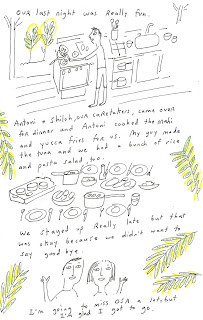 OUR last night was Really fun.
Antoni + Shiloh, our caretakers, came over
for dinner and Antoni cooked the mahi
and yucca fries for us. My guy made
the tuna and we had a bunch of rice
and pasta salad, too.
We stayed up Really late but that
was okay because we didn't want to
say good bye.
I'm going to miss OSA a lot, but
I'm glad I got to go.